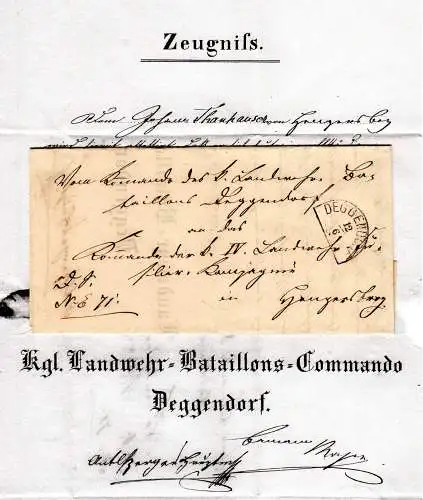 Zeugniſs.
Johann Thanhauser von Hengersberg
Vom Komando des k. Landwehr Ba-
taillons Deggendorf
an das
Komando der k. IV. Landwehr Fü-
silier-Kompagnie
in Hengersberg
D. S.
N. E 71.
DEGGENDORF
12
6
Kgl. Landwehr-Bataillons-Commando
Deggendorf.